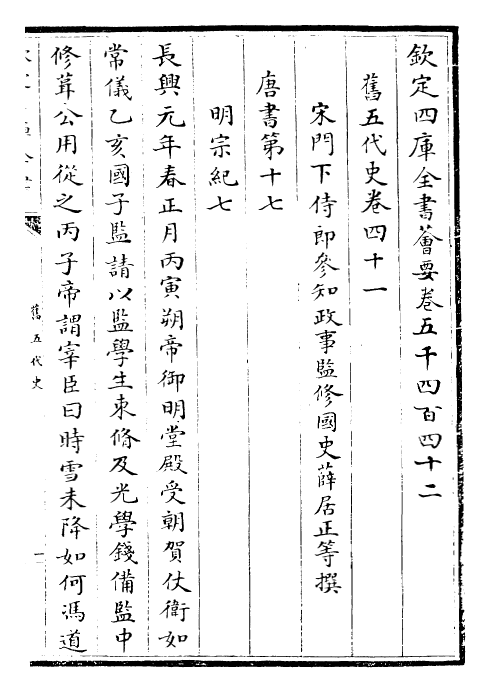 欽定四庫全書薈要卷五千四百四十二
舊五代史卷四十一
宋門下侍郎參知政事監修國史薛居正等撰
唐書第十七
明宗紀七
長興元年春正月丙寅朔帝御明堂殿受朝賀仗衛如
常儀乙亥國子監請以監學生束脩及光學錢備監中
修葺公用從之丙子帝謂宰臣曰時雪未降如何馮道
舊五代史
一